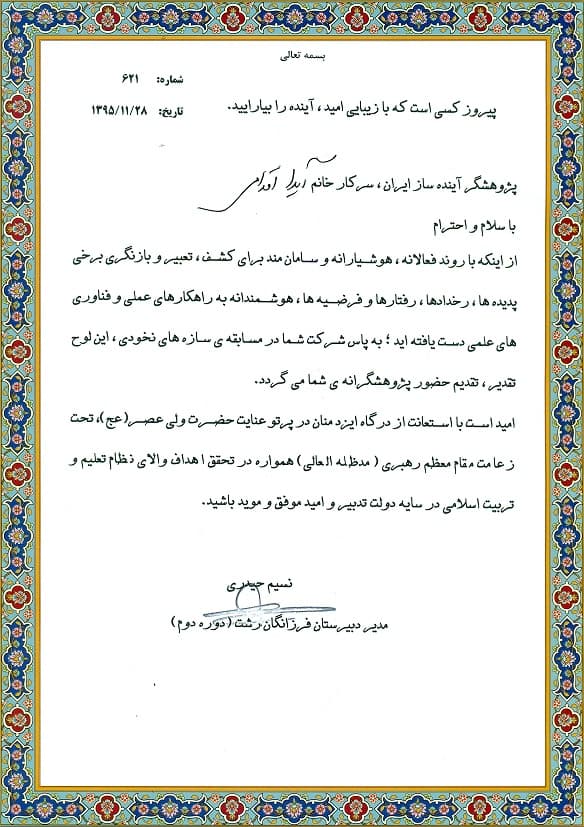 بسمه تعالی
شماره: ۶۲۱
پیروز کسی است که با زیبایی امید، آینده را بیارایید.
تاریخ: ۱۳۹۵/۱۱/۲۸
پژوهشگر آینده ساز ایران، سرکار خانم آیدا
با سلام و احترام
از اینکه با روند فعالانه، هوشیارانه و سامان مند برای کشف، تعبیر و بازنگری برخی
پدیده ها، رخدادها، رفتارها و فرضیه ها، هوشمندانه به راهکارهای عملی و فناوری
های علمی دست یافته اید؛ به پاس شرکت شما در مسابقه ی سازه های نخودی، این لوح
تقدیر، تقدیم حضور پژوهشگرانه ی شما می گردد.
امید است با استعانت از درگاه ایزد منان در پرتو عنایت حضرت ولی عصر(عج)، تحت
زعامت مقام معظم رهبری (مدظله العالی) همواره در تحقق اهداف والای نظام تعلیم و
تربیت اسلامی در سایه دولت تدبیر و امید موفق و موید باشید.
نسیم حیدری
مدیر دبیرستان فرزانگان رشت (دوره دوم)